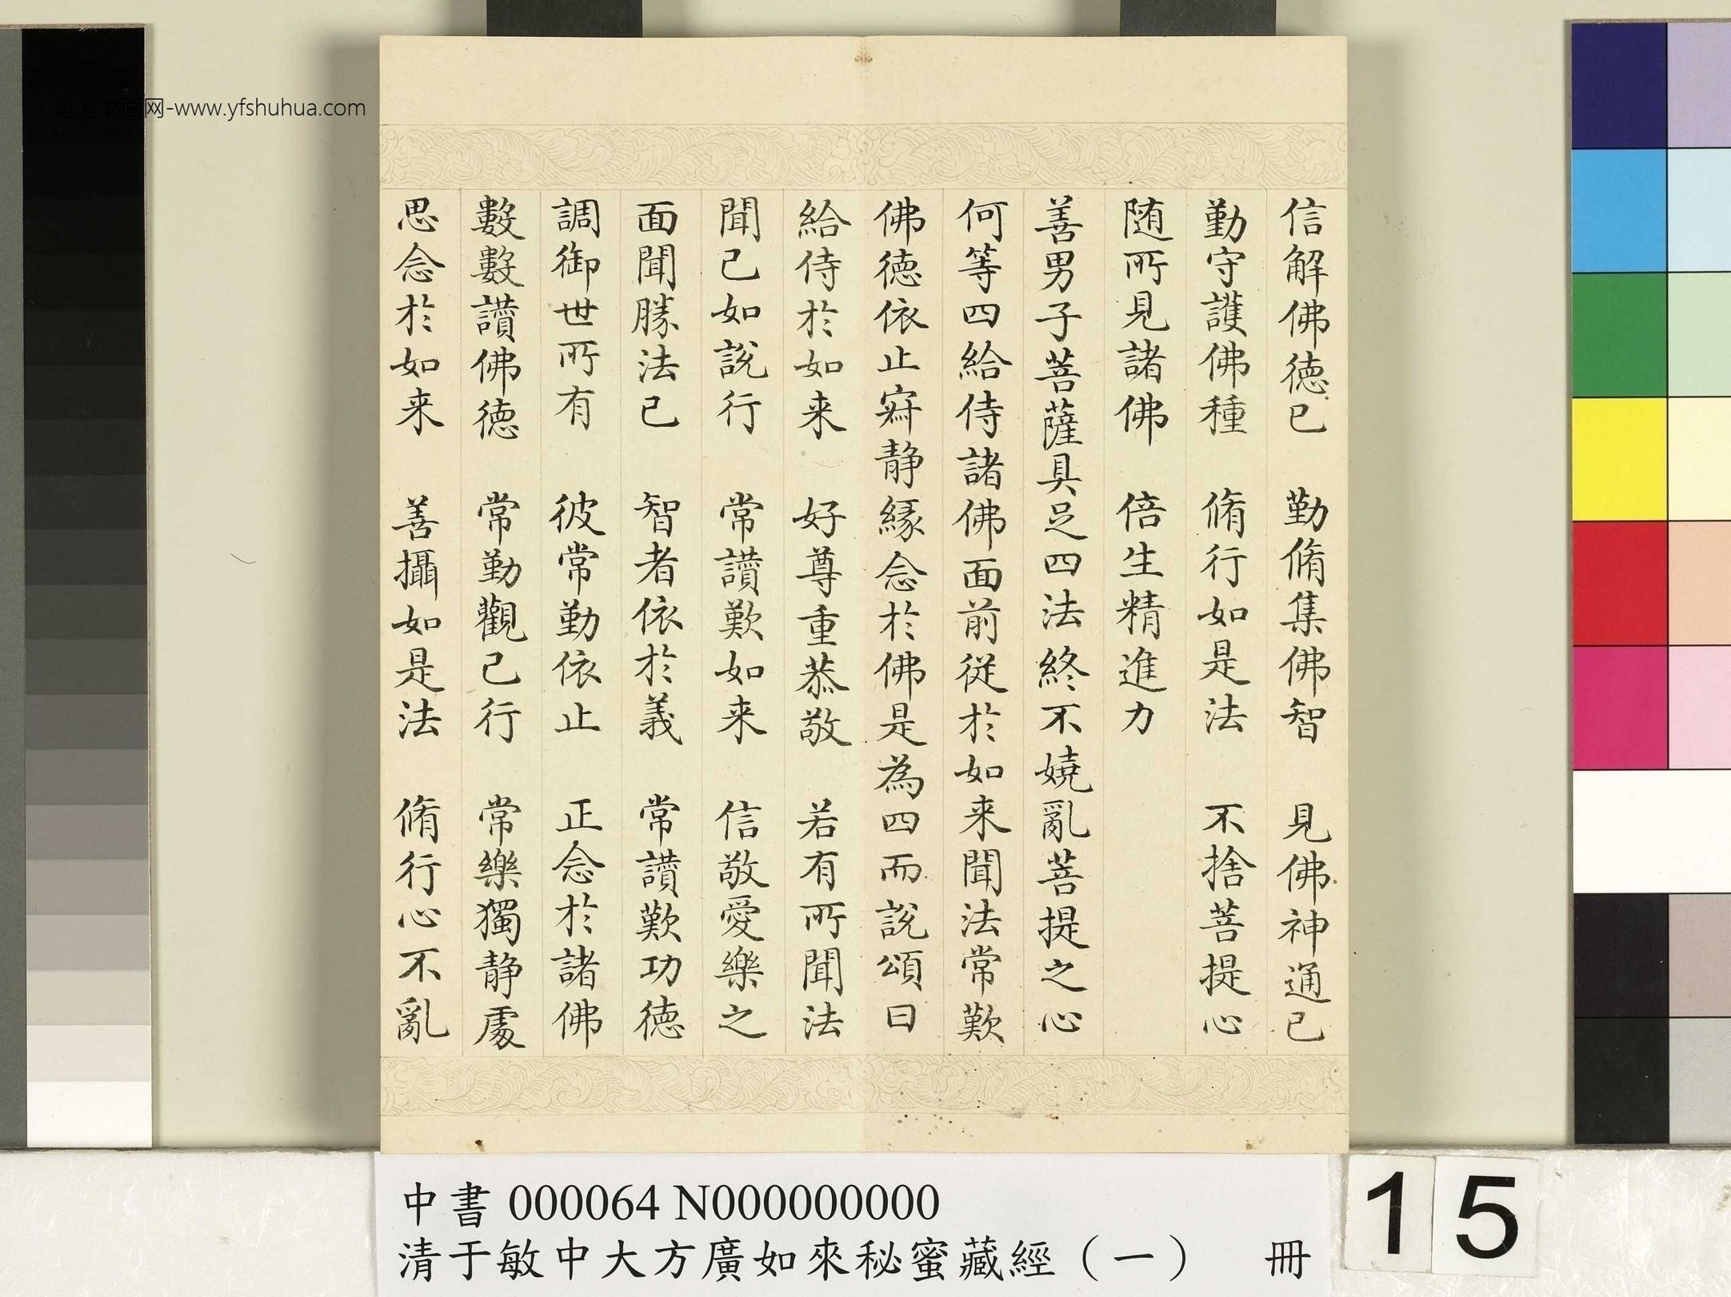 信解佛德已　勤脩集佛智　見佛神通已
勤守護佛種　脩行如是法　不捨菩提心
随所見諸佛　倍生精進力
善男子菩薩具足四法終不嬈亂菩提之心
何等四給侍諸佛面前從於如来聞法常歎
佛德依止寂静緣念於佛是為四而說頌曰
給侍於如来　好尊重恭敬　若有所聞法
聞已如說行　常讚歎如来　信敬愛樂之
面聞勝法已　智者依於義　常讚歎功德
調御世所有　彼常勤依止　正念於諸佛
數數讚佛德　常勤觀己行　常樂獨静處
思念於如来　善攝如是法　脩行心不亂
中書 000064 N000000000
清于敏中大方廣如來秘蜜藏經（一）　冊
15
网-www.yfshuhua.com